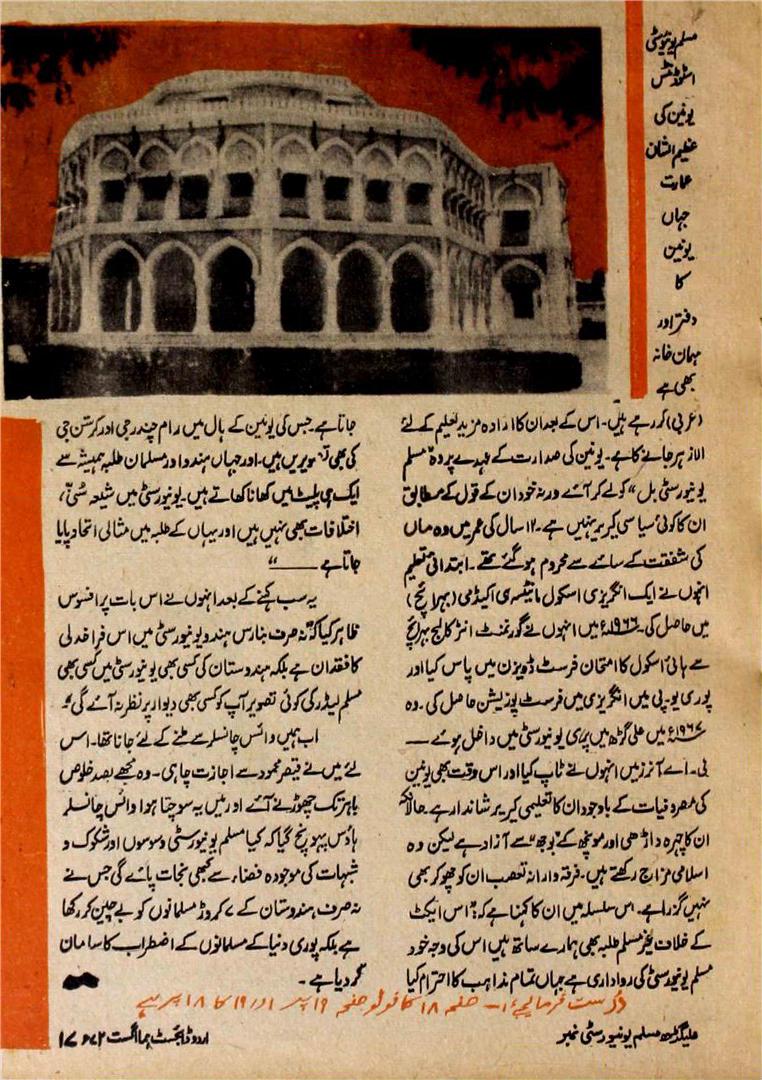 مسلم یونیورسٹی
اسٹوڈنٹس
یونین کی
عظیم الشان
عمارت
جہاں
یونین
کا
دفتر اور
مہمان خانہ
بھی ہے
(عربی) کر رہے ہیں۔ اس کے بعد ان کا ارادہ مزید تعلیم کے لئے
الازہر جانے کا ہے۔ یونین کی صدارت کے عہدے پر وہ "مسلم
یونیورسٹی بل" کو لے کر آئے ورنہ خود ان کے قول کے مطابق
ان کا کوئی سیاسی کریر نہیں ہے۔ ۱۲ سال کی عمر میں وہ ماں
کی شفقت کے سائے سے محروم ہو گئے تھے۔ ابتدائی تعلیم
انہوں نے ایک انگریزی اسکول مانٹیسری اکیڈمی (بہرائچ)
میں حاصل کی۔ ۱۹۶۶ء میں انہوں نے گورنمنٹ انٹر کالج بہرائچ
سے ہائی اسکول کا امتحان فرسٹ ڈویزن میں پاس کیا اور
پوری یو۔پی میں انگریزی میں فرسٹ پوزیشن حاصل کی۔ وہ
۱۹۶۷ء میں علی گڑھ میں پری یونیورسٹی میں داخل ہوئے ــــ
بی۔ اے آنرز میں انہوں نے ٹاپ کیا اور اس وقت بھی یونین
کی مصروفیات کے باوجود ان کا تعلیمی کریر شاندار ہے۔ حالانکہ
ان کا چہرہ داڑھی اور مونچھ کے "بوجھ" سے آزاد ہے لیکن وہ
اسلامی مزاج رکھتے ہیں۔ فرقہ وارانہ تعصب ان کو چھو کر بھی
نہیں گزرا ہے۔ اس سلسلہ میں ان کا کہنا ہے کہ: "اس ایکٹ
کے خلاف غیر مسلم طلبہ بھی ہمارے ساتھ ہیں اس کی وجہ خود
مسلم یونیورسٹی کی رواداری ہے جہاں تمام مذاہب کا احترام کیا
جاتا ہے۔ جس کی یونین کے ہال میں رام چندر جی اور کرشن جی
کی بھی تصویریں ہیں۔ اور جہاں ہندو اور مسلمان طلبہ ہمیشہ سے
ایک ہی پلیٹ میں کھانا کھاتے ہیں۔ یونیورسٹی میں شیعہ سُنّی،
اختلافات بھی نہیں ہیں اور یہاں کے طلبہ میں مثالی اتحاد پایا
جاتا ہے ــــــ"
یہ سب کہنے کے بعد انہوں نے اس بات پر افسوس
ظاہر کیا کہ "نہ صرف بنارس ہندو یونیورسٹی میں اس فراخدلی
کا فقدان ہے بلکہ ہندوستان کی کسی بھی یونیورسٹی میں کسی بھی
مسلم لیڈر کی کوئی تصویر آپ کو کسی بھی دیوار پر نظر نہ آئے گی"۔
اب ہمیں وائس چانسلر سے ملنے کے لئے جانا تھا۔ اس
لئے میں نے قیصر محمود سے اجازت چاہی۔ وہ مجھے بصد خلوص
باہر تک چھوڑنے آئے اور میں یہ سوچتا ہوا وائس چانسلر
ہاؤس پہونچ گیا کہ کیا مسلم یونیورسٹی وسوسوں اور شکوک و
شبہات کی موجودہ فضاء سے کبھی نجات پائے گی جس نے
نہ صرف ہندوستان کے ۷ کروڑ مسلمانوں کو بے چین کر رکھا
ہے بلکہ پوری دنیا کے مسلمانوں کے اضطراب کا سامان
کر دیا ہے۔
درست فرمالیجئے ۔ صفحہ ۱۸ کا فوٹو صفحہ ۱۹ پر اور ۱۹ کا ۱۸ پر ہے
علیگڑھ مسلم یونیورسٹی نمبر
اردو ڈائجسٹ ہما اگست ۷۲ء ۱۷